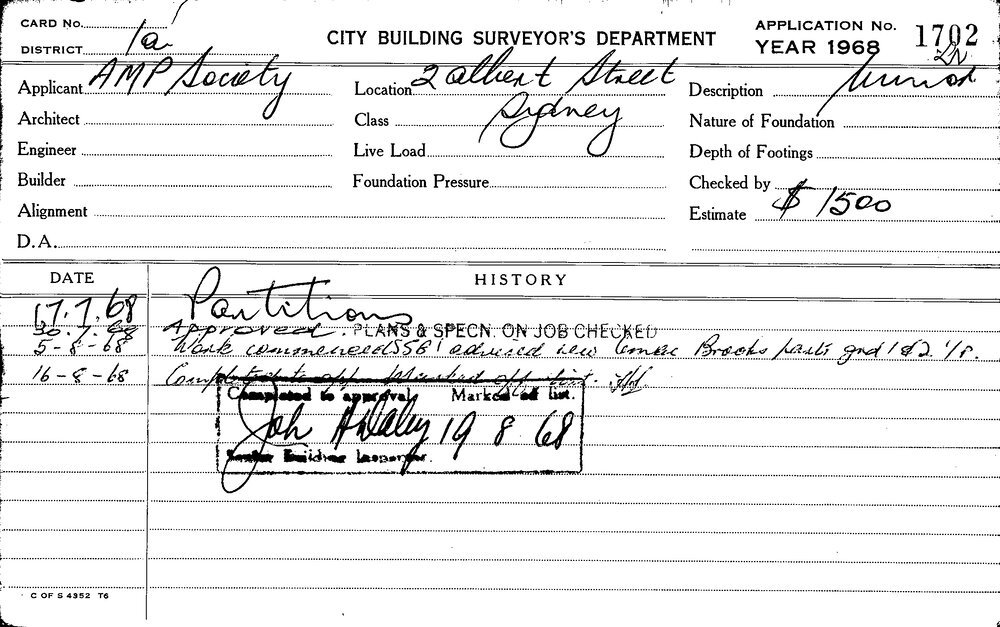 CARD No.
CITY BUILDING SURVEYOR'S DEPARTMENT
APPLICATION No. 1702
DISTRICT 1a
YEAR 1968
Applicant AMP Society
Location 2 Albert Street
Description Minor
Architect
Class Sydney
Nature of Foundation
Engineer
Live Load
Depth of Footings
Builder
Foundation Pressure
Checked by
Alignment
Estimate $ 1500
D.A.
DATE
HISTORY
17.7.68 Partitions
30.7.68 Approved. PLANS & SPECN. ON JOB CHECKED
5-8-68 Work commenced advised Brooks parts gnd 1 & 2
16-8-68
Completed to approval Marked off list.
19 8 68
Senior Building Inspector.
C OF S 4352 T6